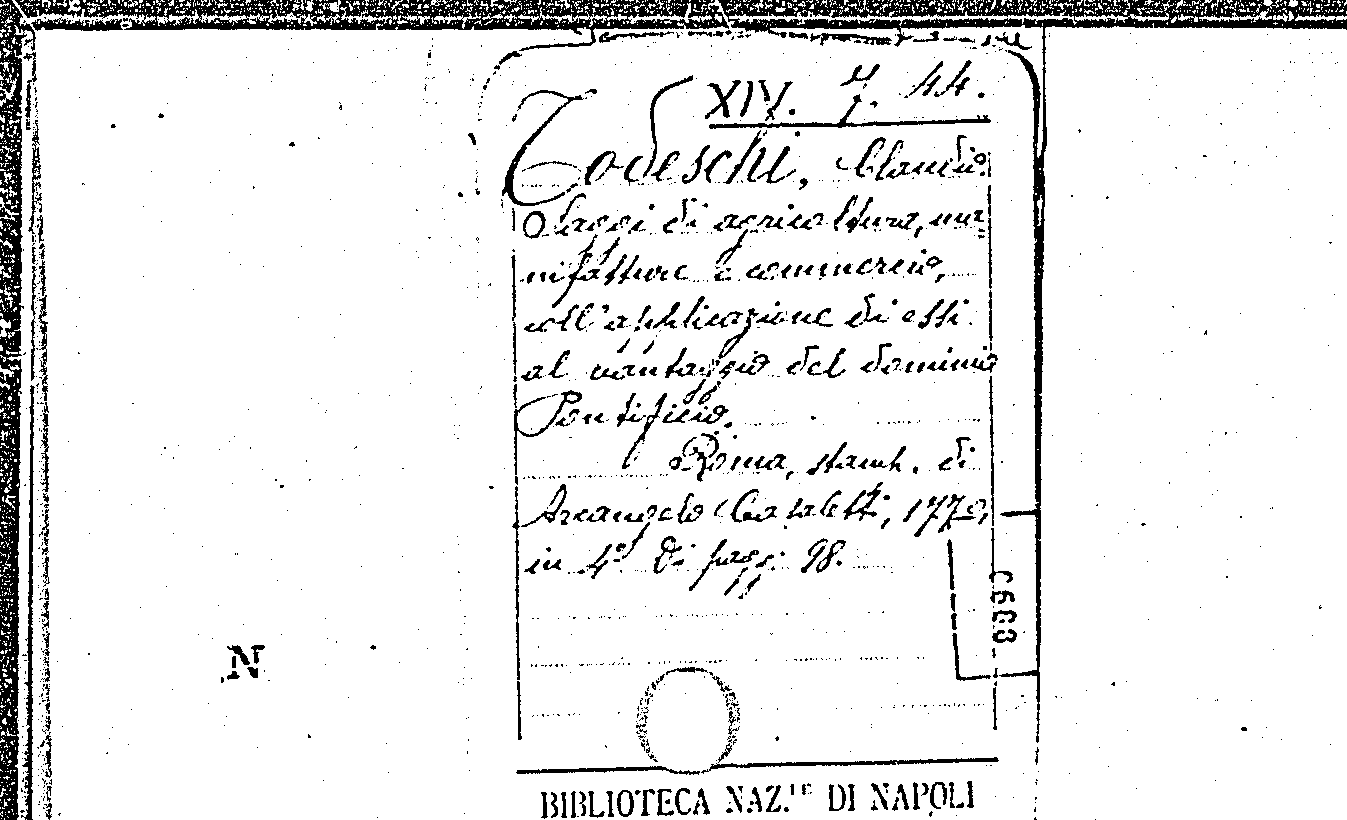 XIV. 7. 44.
Todeschi, Claudio.
Saggi di agricoltura, ma=
nifatture e commercio,
coll'applicazione di essi
al vantaggio del dominio
Pontificio.
Roma, stamp. di
Arcangelo Casaletti, 1770,
in 4° di pagg. 98.
N
BIBLIOTECA NAZ.LE DI NAPOLI